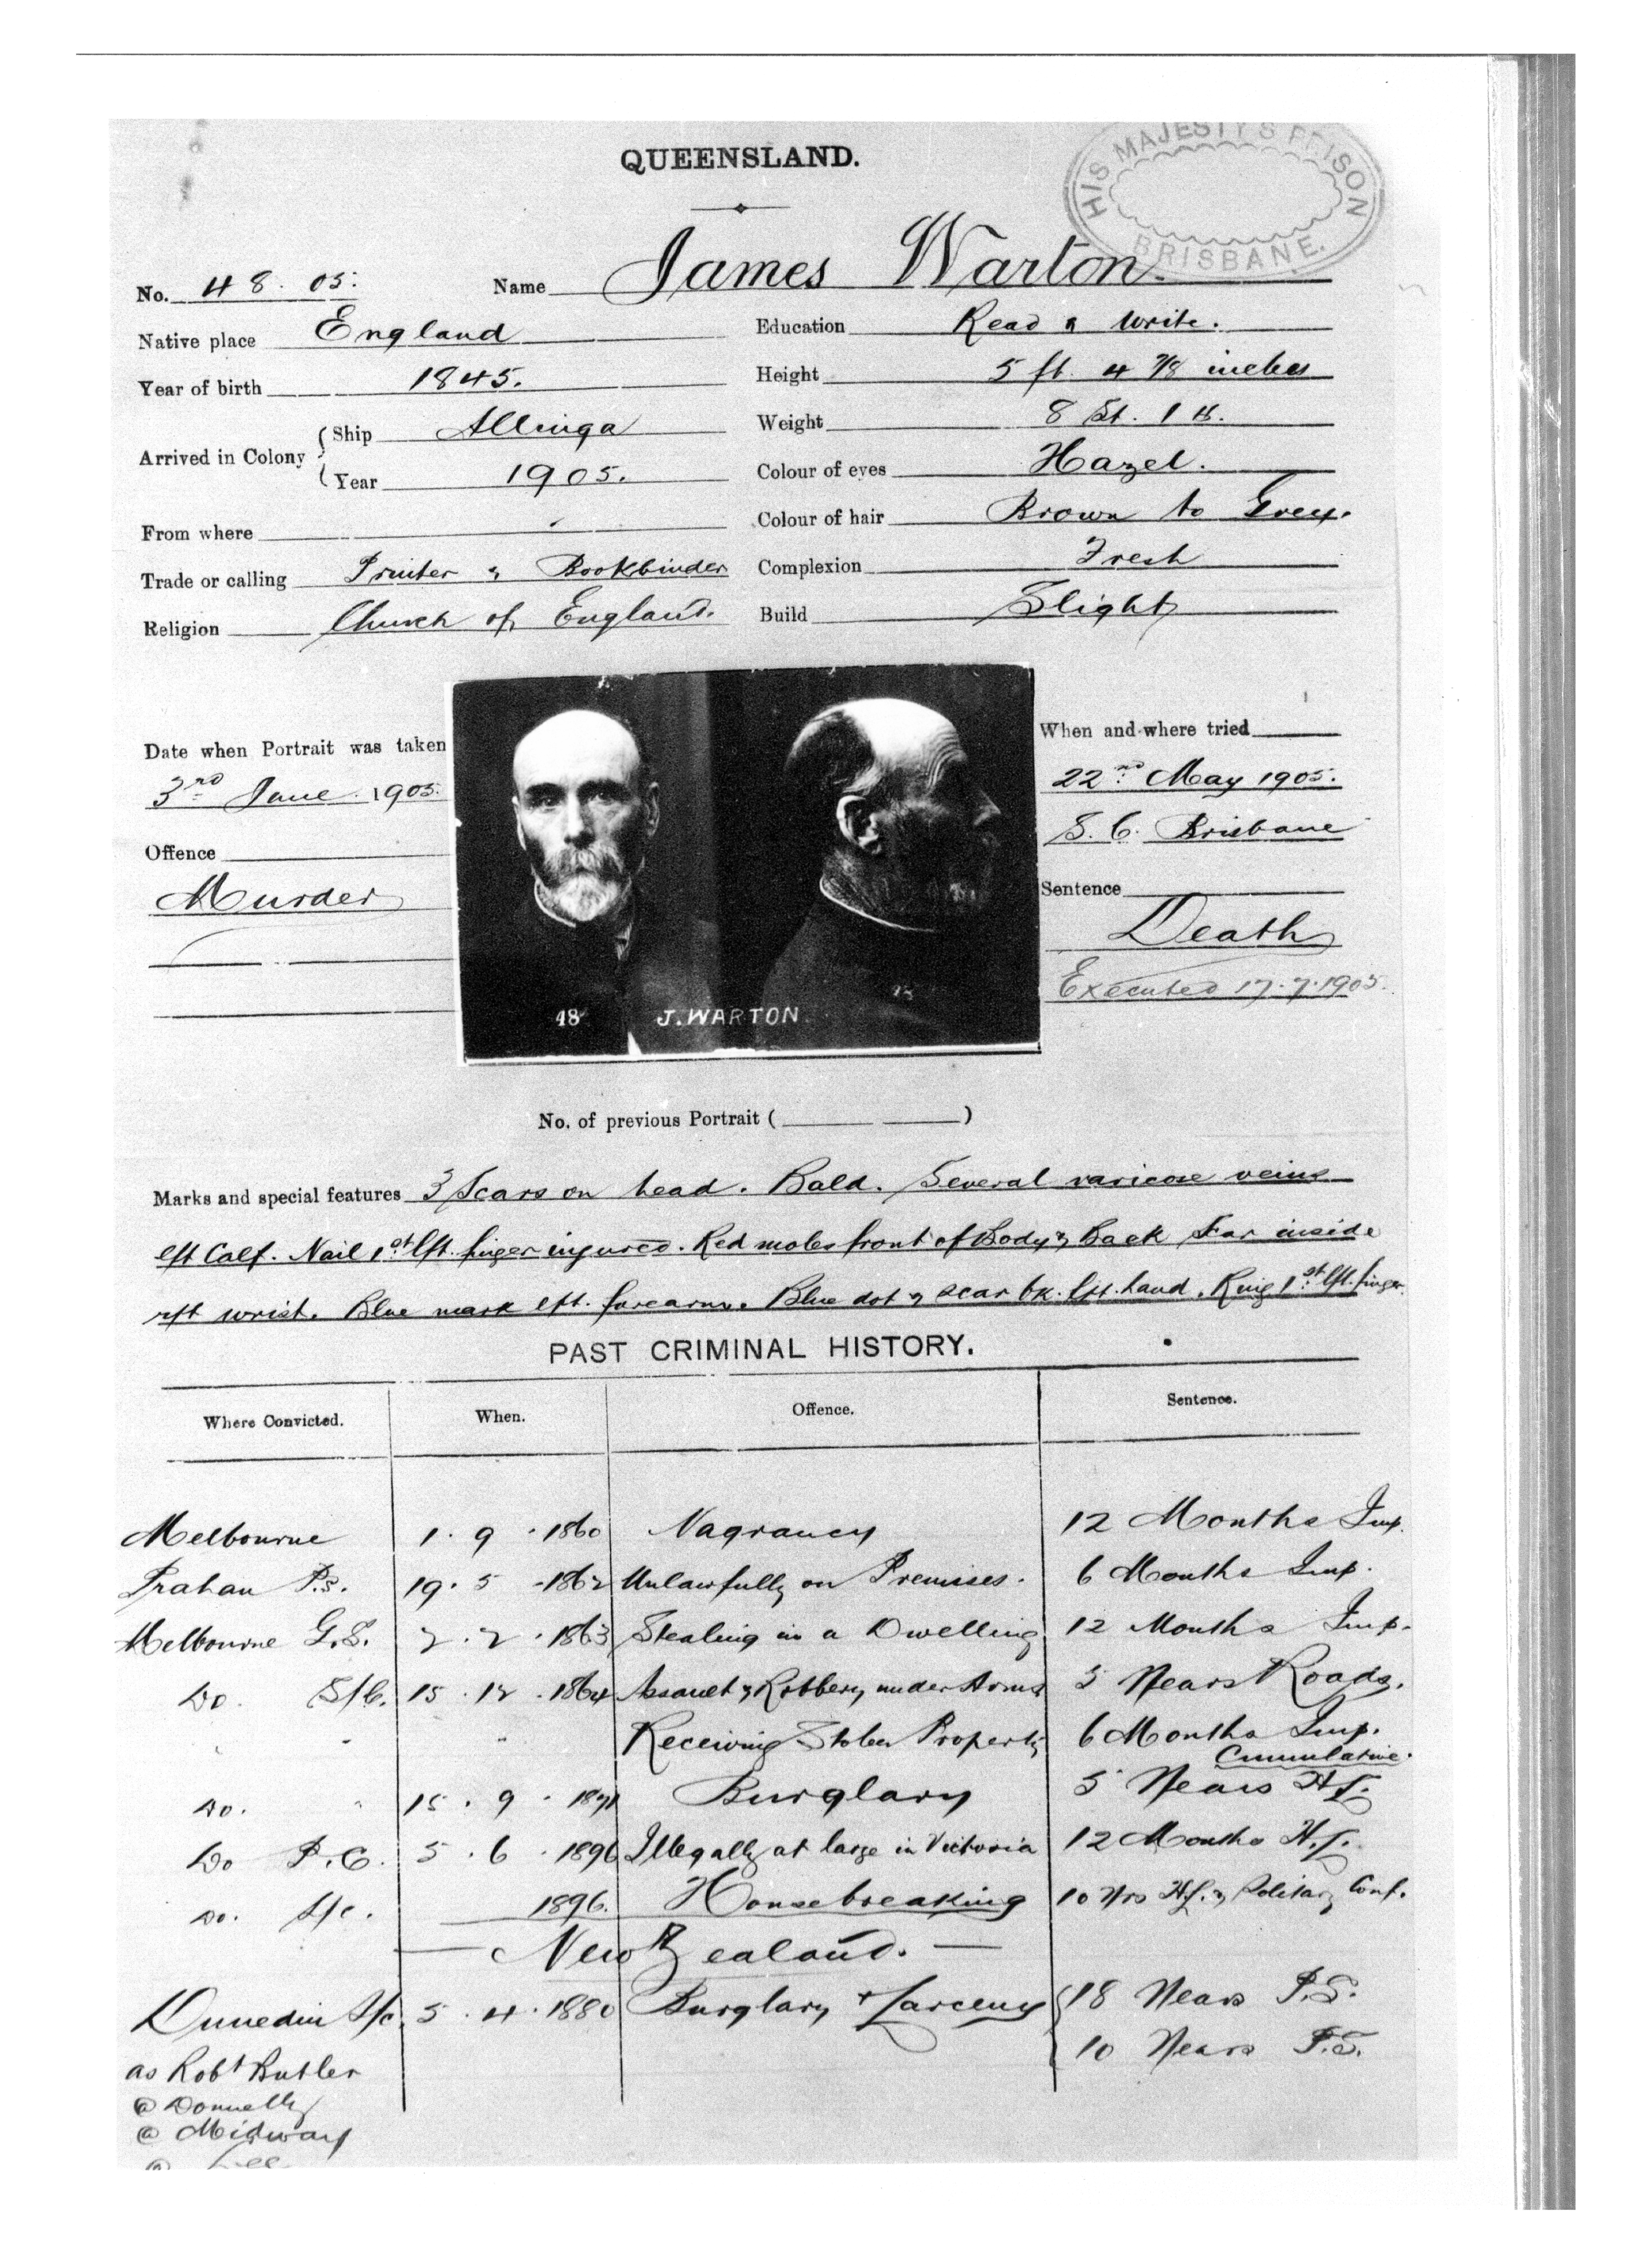 QUEENSLAND.
HIS MAJESTY'S PRISON
BRISBANE.
No. 48. 05. Name James Warton.
Native place England Education Read & Write.
Year of birth 1845. Height 5 ft. 4 7/8 inches
Arrived in Colony { Ship Allinga Weight 8 St. 1 lb.
Year 1905. Colour of eyes Hazel.
From where Colour of hair Brown to Grey.
Trade or calling Printer & Bookbinder Complexion Fresh
Religion Church of England. Build Slight
Date when Portrait was taken
3rd June. 1905.
Offence
Murder
48 J. WARTON
When and where tried
22nd May 1905.
S. C. Brisbane
Sentence
Death
Executed 17.7.1905.
No. of previous Portrait ( )
Marks and special features 3 Scars on head. Bald. Several varicose veins
lft Calf. Nail 1st lft. finger injured. Red moles front of Body & Back Scar inside
rft wrist. Blue mark lft. forearm. Blue dot & scar bk. lft. hand. Ring 1st lft. finger.
PAST CRIMINAL HISTORY.
Where Convicted. When. Offence. Sentence.
Melbourne 1. 9. 1860 Vagrancy 12 Months Imp.
Prahan P.S. 19. 5. 1862 Unlawfully on Premises. 6 Months Imp.
Melbourne G.S. 2. 2. 1863 Stealing in a Dwelling 12 Months Imp.
Do. S/C. 15. 12. 1864 Assault & Robbery under Arms 5 Years Roads.
" " " Receiving Stolen Property 6 Months Imp.
Cumulative.
Do. " 15. 9. 1871 Burglary 5 Years H.L.
Do P.C. 5. 6. 1896 Illegally at large in Victoria 12 Months H.L.
Do. S/C. 1896. Housebreaking 10 Yrs H.L. & Solitary Conf.
— New Zealand. —
Dunedin S/C. 5. 4. 1880 Burglary & Larceny { 18 Years P.S.
10 Years P.S.
as Robt Butler
@ Donnelly
@ Midway
@ Lee